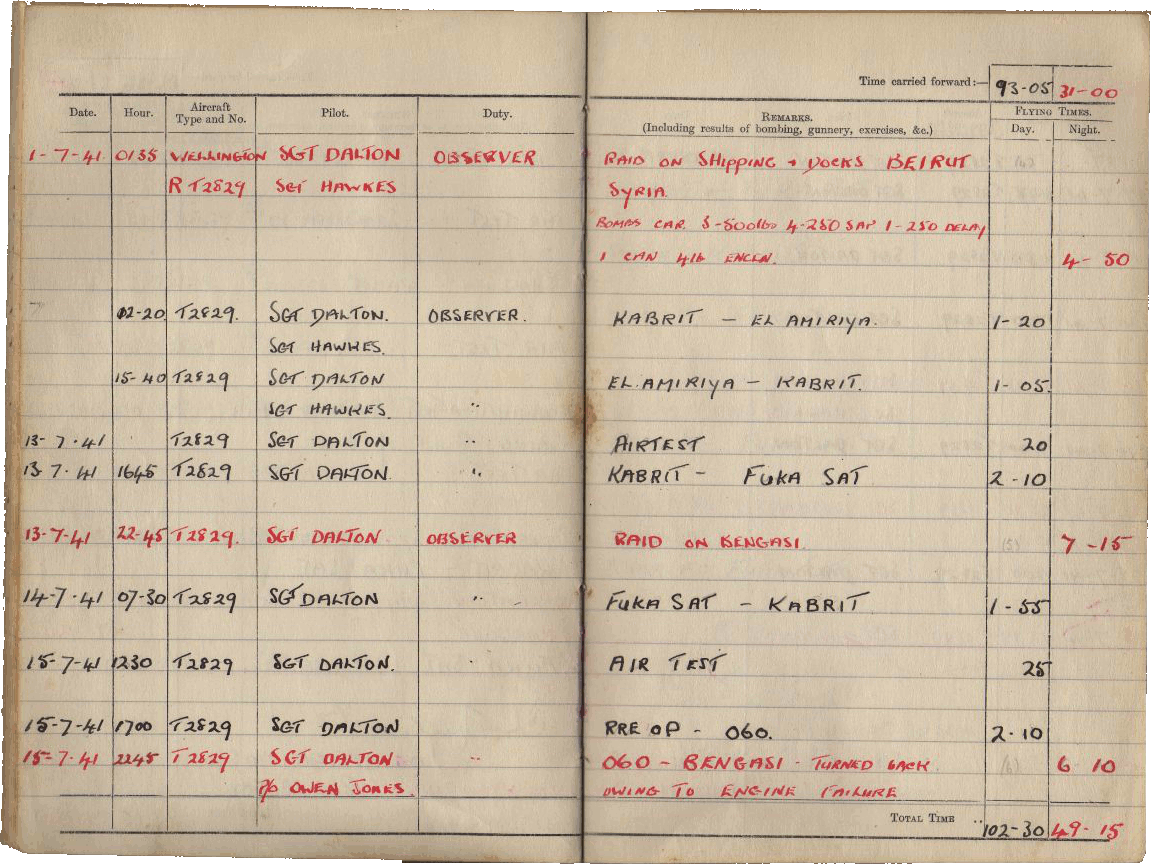 Time carried forward:— 93-05 31-00
Date. Hour. Aircraft Type and No. Pilot. Duty. REMARKS. (Including results of bombing, gunnery, exercises, &c.) FLYING TIMES. Day. Night.
1-7-41 0135 WELLINGTON SGT DALTON OBSERVER RAID ON SHIPPING + DOCKS BEIRUT
R T2829 SGT HAWKES SYRIA.
BOMBS CAR. 5-500lbs 4-250 SAP 1-250 DELAY
1 CAN 4lb ENCEN. 4-50
02-20 T2829. SGT DALTON. OBSERVER. KABRIT — EL AMIRIYA. 1-20
SGT HAWKES.
15-40 T2829 SGT DALTON EL.AMIRIYA — KABRIT. 1-05
SGT HAWKES. "
13-7-41 T2829 SGT DALTON " AIRTEST 20
13 7.41 1645 T2829 SGT DALTON. " KABRIT - FUKA SAT 2-10
13-7-41 22-45 T2829. SGT DALTON. OBSERVER RAID ON BENGASI. (5) 7-15
14-7-41 07-30 T2829 SGT DALTON " FUKA SAT - KABRIT. 1-55
15-7-41 1230 T2829 SGT DALTON. " AIR TEST 25
15-7-41 1700 T2829 SGT DALTON RRE OP - 060. 2-10
15-7-41 2245 T2829 SGT DALTON " 060 - BENGASI - TURNED BACK 6 10
P/O OWEN JONES. OWING TO ENGINE FAILURE
TOTAL TIME .. 102-30 49-15